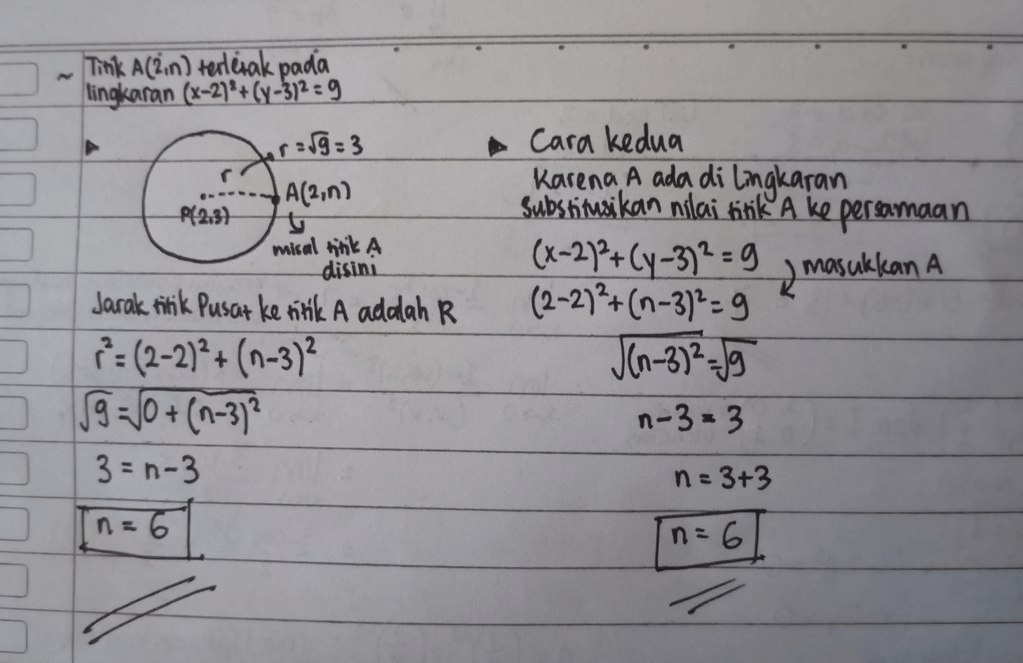 ~ Titik A(2,n) terletak pada
lingkaran (x-2)²+(y-3)² = 9
r = √9 = 3
r
A(2,n)
P(2,3)
misal titik A
disini
Jarak titik Pusat ke titik A adalah R
r² = (2-2)² + (n-3)²
√9 = √0 + (n-3)²
3 = n-3
n = 6
Cara kedua
Karena A ada di Lingkaran
Substitusikan nilai titik A ke persamaan
(x-2)²+(y-3)² = 9
masukkan A
(2-2)²+(n-3)² = 9
√(n-3)² = √9
n-3 = 3
n = 3+3
n = 6